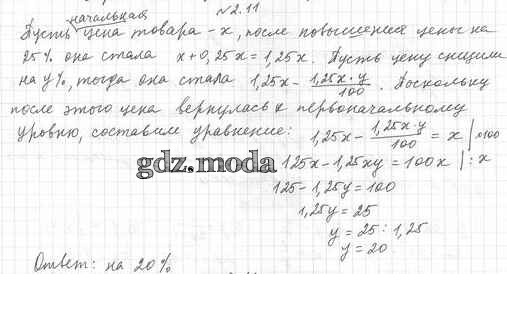 №2.11
начальная
Пусть цена товара - x, после повышения цены на
25% она стала x+0,25x=1,25x. Пусть цену снизили
на y%, тогда она стала 1,25x - 1,25x·y/100. Поскольку
после этого цена вернулась к первоначальному
уровню, составим уравнение: 1,25x - 1,25x·y/100 = x | ·100
gdz.moda 125x - 1,25xy = 100x | : x
125 - 1,25y = 100
1,25y = 25
y = 25 : 1,25
y = 20.
Ответ: на 20%